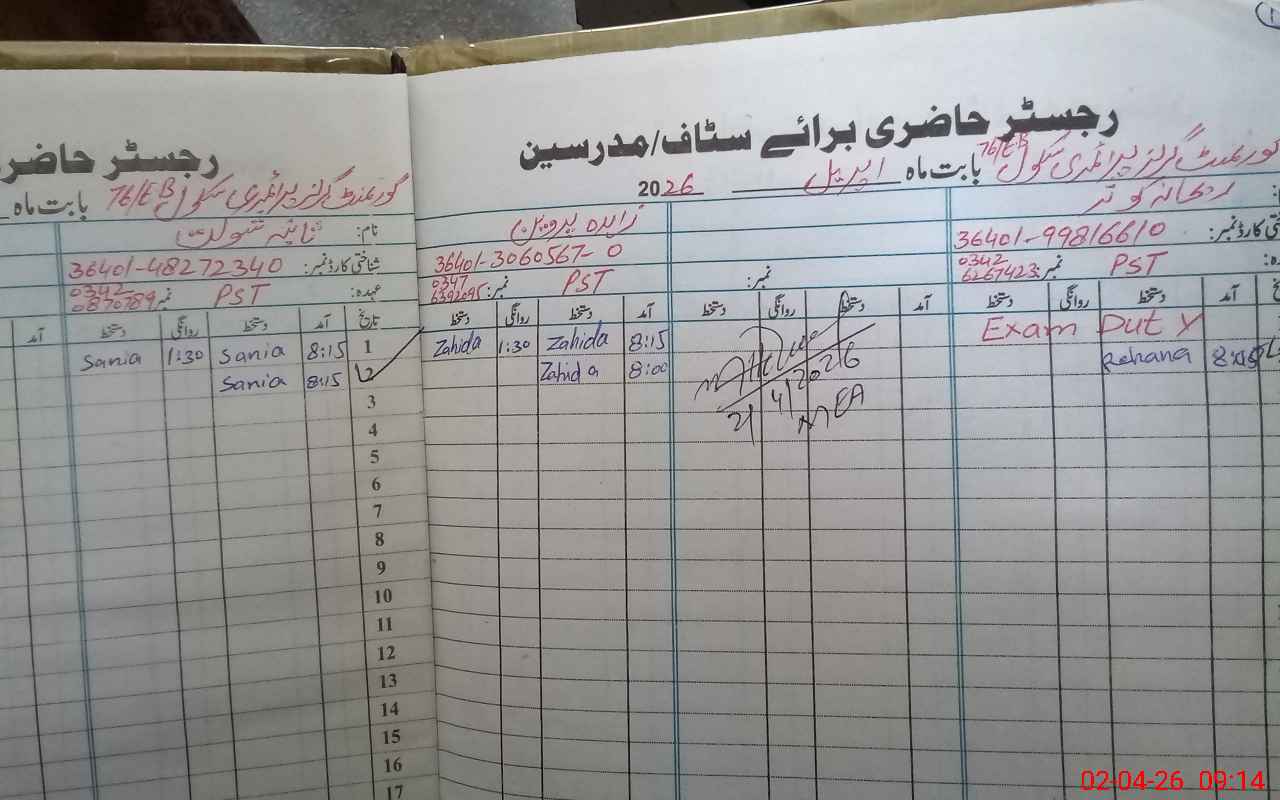 رجسٹر حاضری برائے سٹاف/مدرسین
گورنمنٹ گرلز پرائمری سکول 76/EB بابت ماہ اپریل 2026
ریحانہ کوثر
36401-9981661 0
0342
6267423 نمبر: PST
دستخط روانگی دستخط آمد
Exam Duty
Rehana
نمبر:
دستخط روانگی دستخط آمد
2/4/2026
MEA
زاہدہ پروین
36401-3060567-0
0347
نمبر: PST
دستخط روانگی دستخط آمد
Zahida 1:30 Zahida 8:15
Zahida 8:00
رجسٹر حاضر
گورنمنٹ گرلز پرائمری سکول 76/EB بابت ماہ
نام: ثانیہ شوکت
شناختی کارڈ نمبر: 36401-48272340
عہدہ: PST نمبر 0342
0870789
تاریخ آمد دستخط روانگی دستخط آمد
1 8:15 Sania 1:30 Sania
2 8:15 Sania
3
4
5
6
7
8
9
10
11
12
13
14
15
16
17
02-04-26 09:14